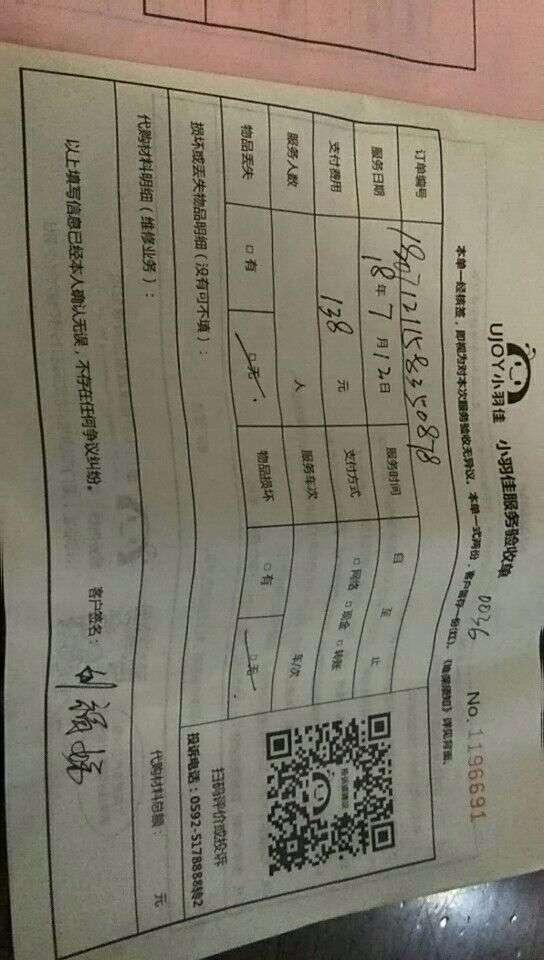 UJOY小羽佳 小羽佳服务验收单 00236 No.1196691
本单一经核签，即视为对本次服务验收无异议。本单一式两份，客户需存一份(红)。《维保须知》详见背面。
订单编号 1807121158350878
服务日期 18年7月12日 服务时间 自 至 止
支付费用 138 元 支付方式 □网络 □现金 □转账
服务人数 人 服务车次 车/次
物品丢失 □有 □无 物品损坏 □有 □无
损坏或丢失物品明细（没有可不填）：
扫码评价或投诉
投诉电话：0592-5178888转2
代购材料明细（维修业务）： 代购材料总额： 元
以上填写信息已经本人确认无误，不存在任何争议纠纷。 客户签名：